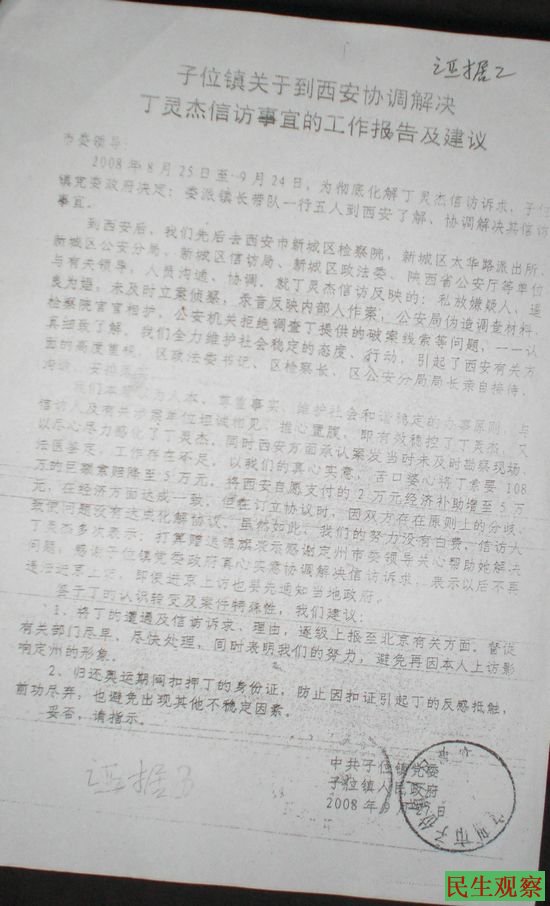 证据2
子位镇关于到西安协调解决
丁灵杰信访事宜的工作报告及建议
市委领导:
2008年8月25日至9月24日,为彻底化解丁灵杰信访诉求,子位
镇党委政府决定:委派镇长带队一行五人到西安了解、协调解决其信访
事宜。
到西安后,我们先后去西安市新城区检察院,新城区太华路派出所、
新城区公安分局、新城区信访局、新城区政法委、陕西省公安厅等单位
与有关领导,人员沟通、协调。就丁灵杰信访反映的:私放嫌疑人、逼
良为娼,未及时立案侦察,录音反映内部人作案,公安局伪造调查材料,
检察院官官相护,公安机关拒绝调查丁提供的破案线索等问题,一一认
真细致了解,我们全力维护社会稳定的态度、行动,引起了西安有关方
面的高度重视,区政法委书记、区检察长、区公安分局局长亲自接待,
沟通、安排
我们本着以人为本、尊重事实、维护社会和谐稳定的办事原则,与
信访人及有关涉案单位坦诚相见,推心置腹,即有效稳控了丁灵杰,又
以尽心尽力感化了丁灵杰,同时西安方面承认案发当时未及时勘察现场,
法医鉴定,工作存在不足,以我们的真心实意,苦口婆心将丁索要108
万的巨额索赔降至5万元,将西安自愿支付的2万元经济补助增至5万
元,在经济方面达成一致,但在订立协议时,因双方存在原则上的分歧,
致使问题没有达成化解协议。虽然如此,我们的努力没有白费,信访人
丁灵杰多次表示:打算赠送锦旗表示感谢定州市委领导关心帮助她解决
问题;感谢子位镇党委政府真心实意协调解决信访诉求,表示以后不再
进京上访,即便进京上访也要先通知当地政府。
鉴于丁的认识转变及案件特殊性,我们建议:
1、将丁的遭遇及信访诉求、理由,逐级上报至北京有关方面,督促
有关部门尽早、尽快处理,同时表明我们的努力,避免再因本人上访影
响定州的形象。
2、归还奥运期间扣押丁的身份证,防止因扣证引起丁的反感抵触,
前功尽弃,也避免出现其他不稳定因素。
妥否,请指示。
中共子位镇党委
子位镇人民政府
2008年9月 日
证据3
民生观察